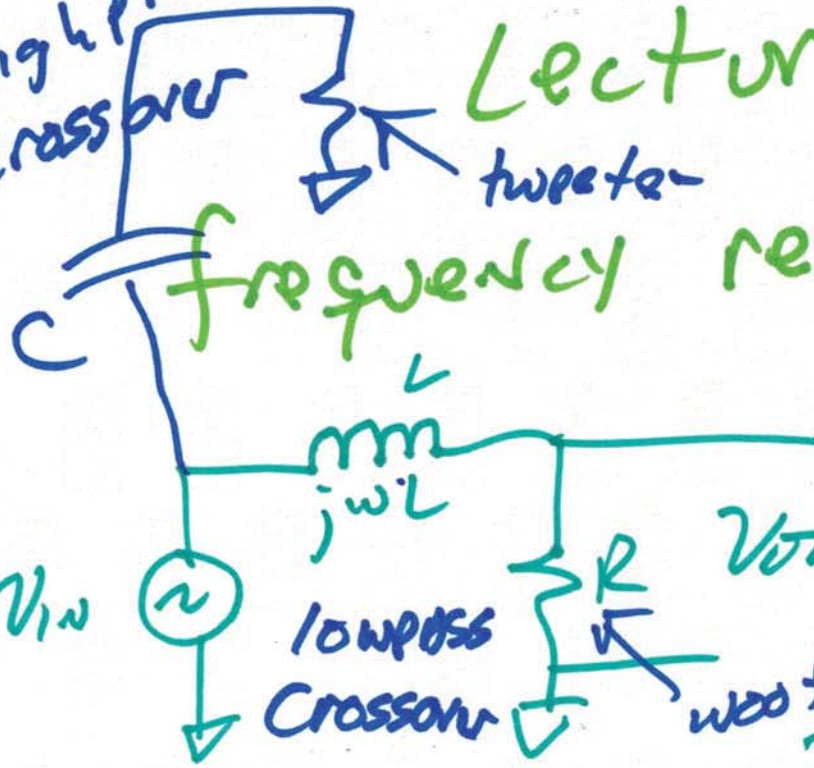 crossover
Lectur
tweeter
frequency re
C
L
jωL
VIN
R
lowpass
Crossover
woof